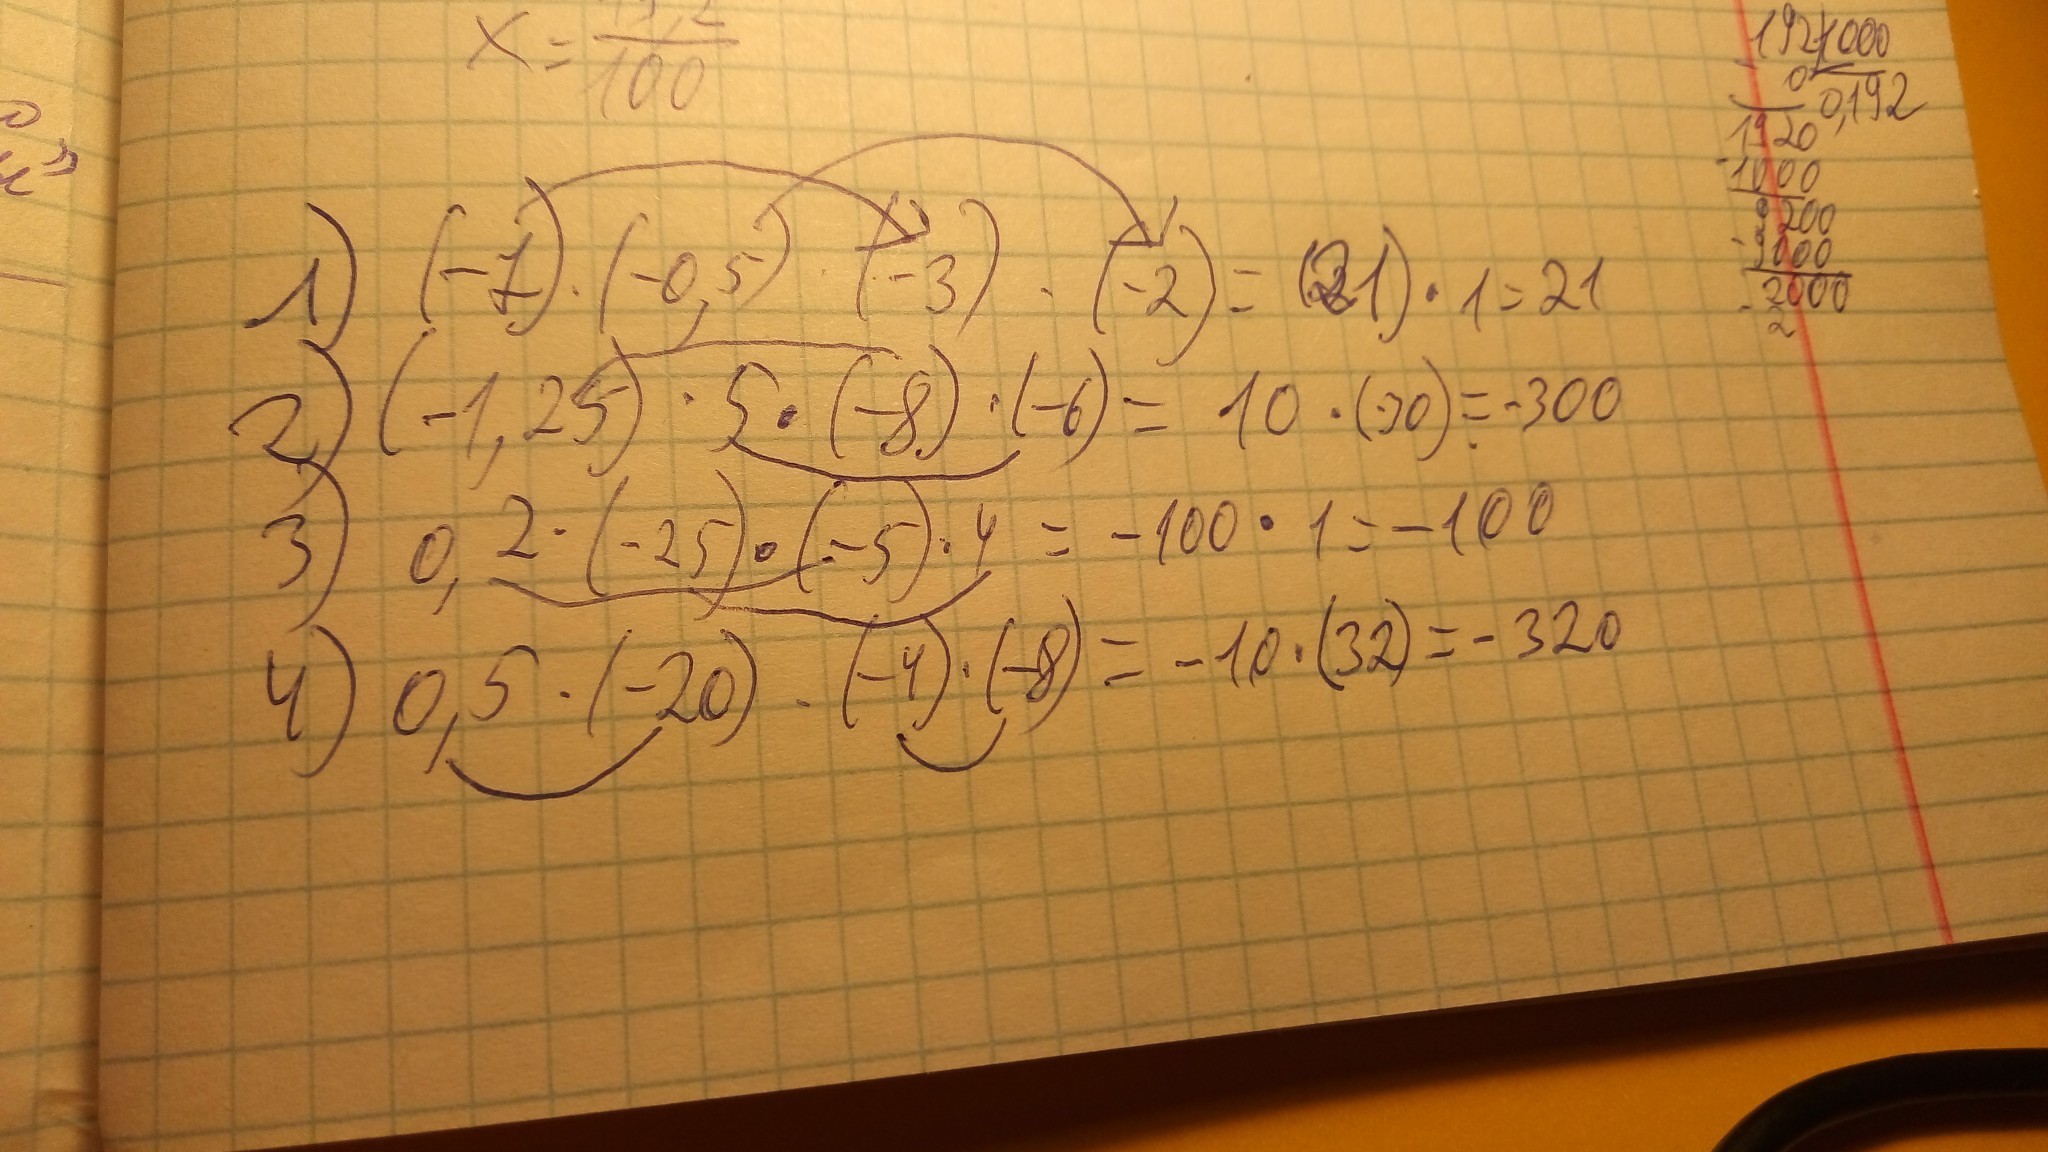 x = 19,2/100
1) (-7) · (-0,5) · (-3) · (-2) = (21) · 1 = 21
2) (-1,25) · 5 · (-8) · (-6) = 10 · (-30) = -300
3) 0,2 · (-25) · (-5) · 4 = -100 · 1 = -100
4) 0,5 · (-20) · (-4) · (-8) = -10 · (32) = -320
192 1000
0 0,192
1920
-1000
9200
-9000
-2000
2